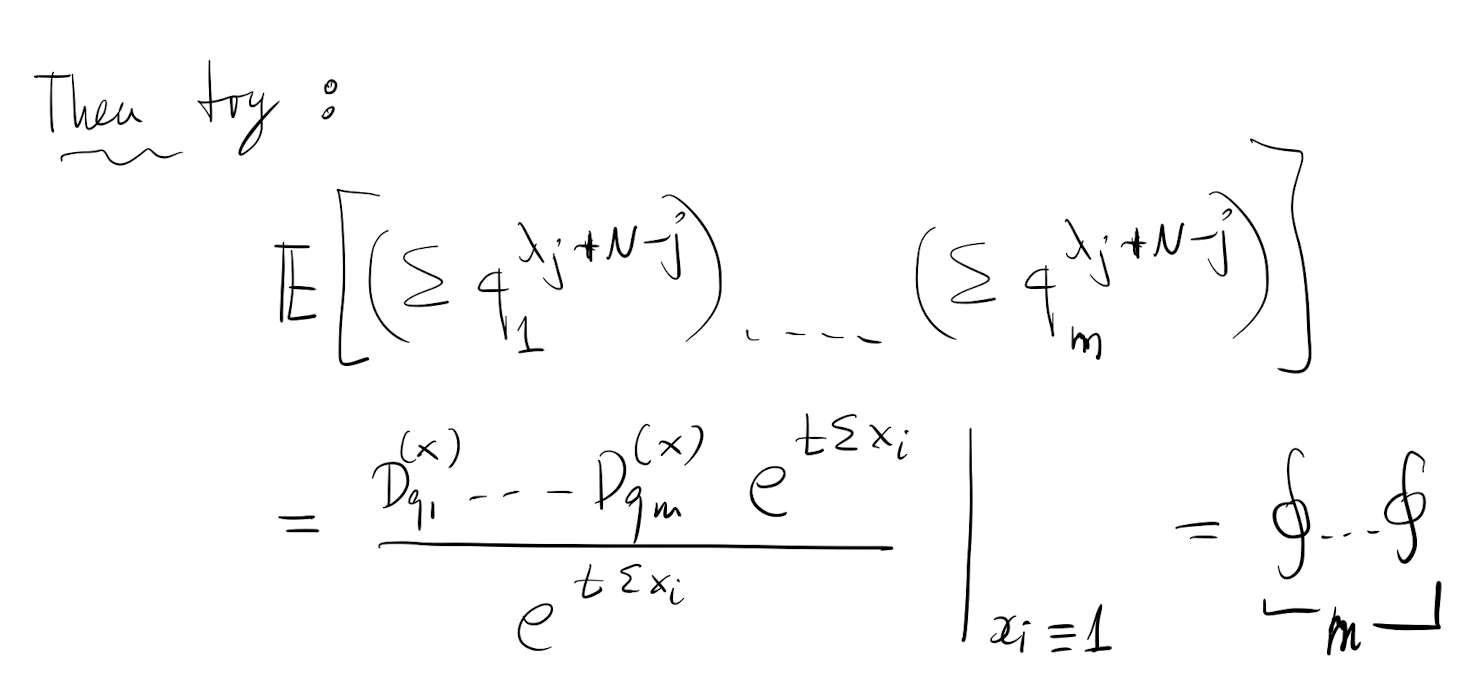 Then try :
𝔼[(Σ q₁^{λⱼ+N−j}) ..... (Σ qₘ^{λⱼ+N−j})]
= (D_{q₁}^{(x)} --- D_{qₘ}^{(x)} e^{tΣxᵢ}) / e^{tΣxᵢ} |_{xᵢ≡1} = ∮...∮ (m)